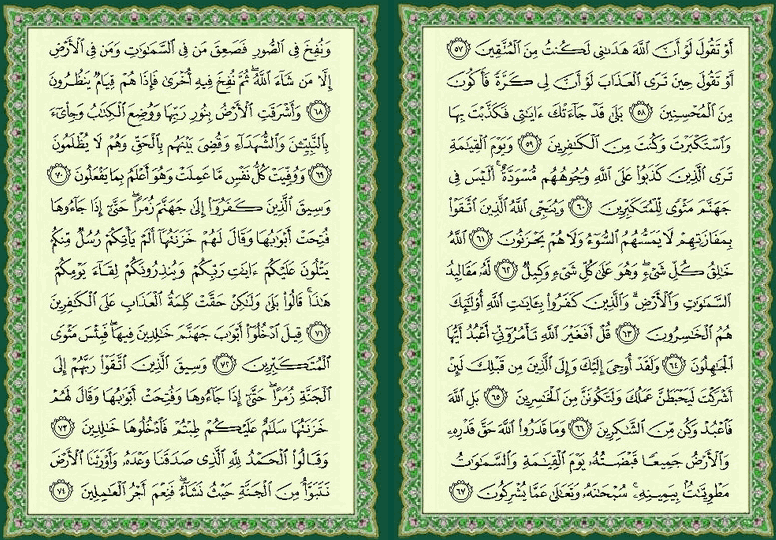 أَوْ تَقُولَ لَوْ أَنَّ ٱللَّهَ هَدَىٰنِى لَكُنتُ مِنَ ٱلْمُتَّقِينَ ٥٧
أَوْ تَقُولَ حِينَ تَرَى ٱلْعَذَابَ لَوْ أَنَّ لِى كَرَّةً فَأَكُونَ
مِنَ ٱلْمُحْسِنِينَ ٥٨ بَلَىٰ قَدْ جَآءَتْكَ ءَايَٰتِى فَكَذَّبْتَ بِهَا
وَٱسْتَكْبَرْتَ وَكُنتَ مِنَ ٱلْكَٰفِرِينَ ٥٩ وَيَوْمَ ٱلْقِيَٰمَةِ
تَرَى ٱلَّذِينَ كَذَبُوا۟ عَلَى ٱللَّهِ وُجُوهُهُم مُّسْوَدَّةٌ ۚ أَلَيْسَ فِى
جَهَنَّمَ مَثْوًى لِّلْمُتَكَبِّرِينَ ٦٠ وَيُنَجِّى ٱللَّهُ ٱلَّذِينَ ٱتَّقَوْا۟
بِمَفَازَتِهِمْ لَا يَمَسُّهُمُ ٱلسُّوٓءُ وَلَا هُمْ يَحْزَنُونَ ٦١ ٱللَّهُ
خَٰلِقُ كُلِّ شَىْءٍ ۖ وَهُوَ عَلَىٰ كُلِّ شَىْءٍ وَكِيلٌ ٦٢ لَّهُۥ مَقَالِيدُ
ٱلسَّمَٰوَٰتِ وَٱلْأَرْضِ ۗ وَٱلَّذِينَ كَفَرُوا۟ بِـَٔايَٰتِ ٱللَّهِ أُو۟لَٰٓئِكَ
هُمُ ٱلْخَٰسِرُونَ ٦٣ قُلْ أَفَغَيْرَ ٱللَّهِ تَأْمُرُوٓنِّىٓ أَعْبُدُ أَيُّهَا
ٱلْجَٰهِلُونَ ٦٤ وَلَقَدْ أُوحِىَ إِلَيْكَ وَإِلَى ٱلَّذِينَ مِن قَبْلِكَ لَئِنْ
أَشْرَكْتَ لَيَحْبَطَنَّ عَمَلُكَ وَلَتَكُونَنَّ مِنَ ٱلْخَٰسِرِينَ ٦٥ بَلِ ٱللَّهَ
فَٱعْبُدْ وَكُن مِّنَ ٱلشَّٰكِرِينَ ٦٦ وَمَا قَدَرُوا۟ ٱللَّهَ حَقَّ قَدْرِهِۦ
وَٱلْأَرْضُ جَمِيعًا قَبْضَتُهُۥ يَوْمَ ٱلْقِيَٰمَةِ وَٱلسَّمَٰوَٰتُ
مَطْوِيَّٰتٌۢ بِيَمِينِهِۦ ۚ سُبْحَٰنَهُۥ وَتَعَٰلَىٰ عَمَّا يُشْرِكُونَ ٦٧
وَنُفِخَ فِى ٱلصُّورِ فَصَعِقَ مَن فِى ٱلسَّمَٰوَٰتِ وَمَن فِى ٱلْأَرْضِ
إِلَّا مَن شَآءَ ٱللَّهُ ۖ ثُمَّ نُفِخَ فِيهِ أُخْرَىٰ فَإِذَا هُمْ قِيَامٌ يَنظُرُونَ
٦٨ وَأَشْرَقَتِ ٱلْأَرْضُ بِنُورِ رَبِّهَا وَوُضِعَ ٱلْكِتَٰبُ وَجِا۟ىٓءَ
بِٱلنَّبِيِّۦنَ وَٱلشُّهَدَآءِ وَقُضِىَ بَيْنَهُم بِٱلْحَقِّ وَهُمْ لَا يُظْلَمُونَ
٦٩ وَوُفِّيَتْ كُلُّ نَفْسٍ مَّا عَمِلَتْ وَهُوَ أَعْلَمُ بِمَا يَفْعَلُونَ ٧٠
وَسِيقَ ٱلَّذِينَ كَفَرُوٓا۟ إِلَىٰ جَهَنَّمَ زُمَرًا ۖ حَتَّىٰٓ إِذَا جَآءُوهَا
فُتِحَتْ أَبْوَٰبُهَا وَقَالَ لَهُمْ خَزَنَتُهَآ أَلَمْ يَأْتِكُمْ رُسُلٌ مِّنكُمْ
يَتْلُونَ عَلَيْكُمْ ءَايَٰتِ رَبِّكُمْ وَيُنذِرُونَكُمْ لِقَآءَ يَوْمِكُمْ
هَٰذَا ۚ قَالُوا۟ بَلَىٰ وَلَٰكِنْ حَقَّتْ كَلِمَةُ ٱلْعَذَابِ عَلَى ٱلْكَٰفِرِينَ
٧١ قِيلَ ٱدْخُلُوٓا۟ أَبْوَٰبَ جَهَنَّمَ خَٰلِدِينَ فِيهَا ۖ فَبِئْسَ مَثْوَى
ٱلْمُتَكَبِّرِينَ ٧٢ وَسِيقَ ٱلَّذِينَ ٱتَّقَوْا۟ رَبَّهُمْ إِلَى
ٱلْجَنَّةِ زُمَرًا ۖ حَتَّىٰٓ إِذَا جَآءُوهَا وَفُتِحَتْ أَبْوَٰبُهَا وَقَالَ لَهُمْ
خَزَنَتُهَا سَلَٰمٌ عَلَيْكُمْ طِبْتُمْ فَٱدْخُلُوهَا خَٰلِدِينَ ٧٣
وَقَالُوا۟ ٱلْحَمْدُ لِلَّهِ ٱلَّذِى صَدَقَنَا وَعْدَهُۥ وَأَوْرَثَنَا ٱلْأَرْضَ
نَتَبَوَّأُ مِنَ ٱلْجَنَّةِ حَيْثُ نَشَآءُ ۖ فَنِعْمَ أَجْرُ ٱلْعَٰمِلِينَ ٧٤